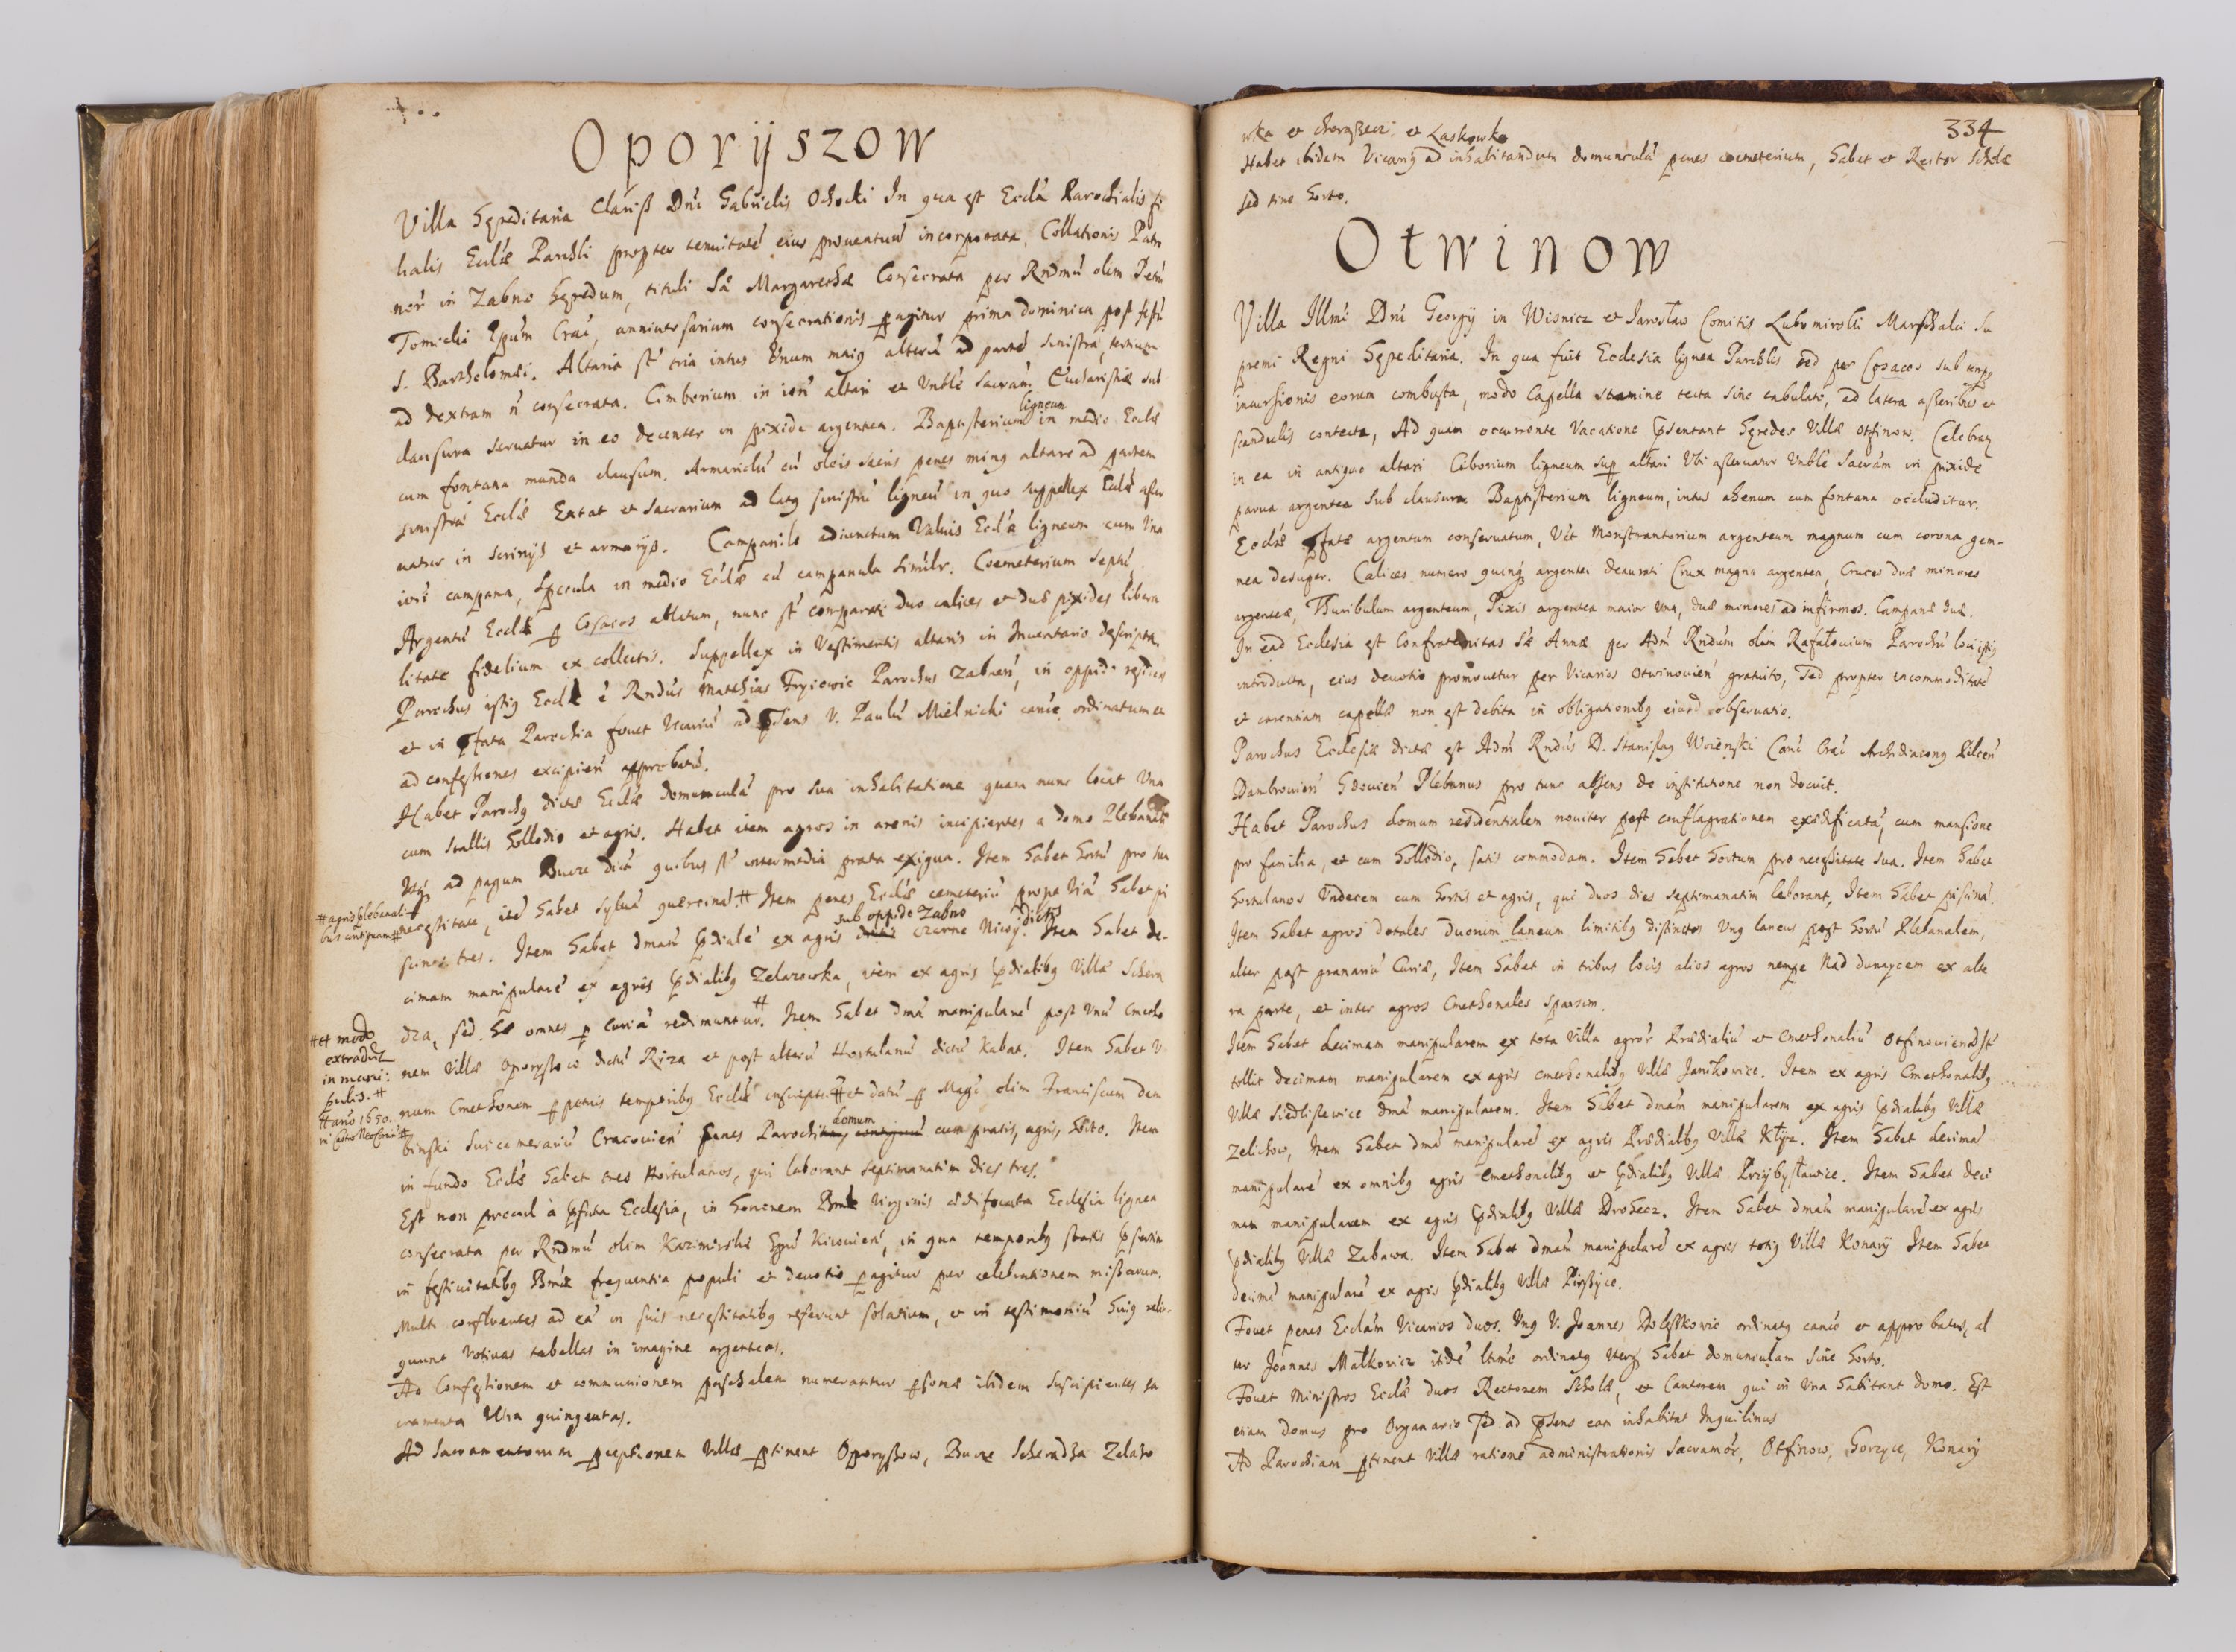 Oporÿszow
Villa Hęreditaria Clariss Dni Gabrielis Ochocki In qua est Eccla Parochialis fi
lialis Eccliæ Parchli propter tenuitaté eius prouentuu incorporata. Collationis Patro
nor in Zabno Hęredum, tituli Sæ Margarethæ Consecrata per Rndmu olim Petru
Tomicki Epum Crac, anniuersarium consecrationis pagitur prima dominica post festu
S. Bartholomæi. Altaria st tria intus Vnum maig alteru ad parté sinistra, tertium
ad dextram n consecrata. Cimborium in iori altari et Vnble Sacram Eucharistiæ sub
clausura seruatur in eo decenter in pixide argentea. Baptisterium ligneum in medio Eccliæ
cum fontana munda clausum. Armariolu cu oleis sacris penes minq altare ad partem
sinistra Eccliæ Extat et Sacrarium ad latq sinistru ligneu in quo suppellex Eccliæ asser
uatur in scrinÿs et armarÿs. Campanile adiunctum Valuis Eccliæ ligneum cum Vna
iori campana, Specula in medio Eccliæ cu campanula similr. Coemeterium septu
Argentu Eccliæ p Cosacos ablatum, nunc st comparati duo calices et duæ pixides libera
litate fidelium ex collectis. Suppellex in Vestimentis altaris in Inuentario descripta.
Parochus istiq Eccliæ è Rndus Mathias Fryiewic Parochus Zabnen, in oppido residen
et in pfata Parochia fouet Vicariu ad psens V. Paulu Mielnicki canice ordinatum et
ad confessiones excipien approbatu.
Habet Parochq dictæ Eccliæ domunculá pro sua inhabitatione quam nunc locat Vna
cum stallis hollodio et agris. Habet item agros in arenis incipientes a domo Plebanali
Vsq ad pagum Bucze dictu quibus st intermedia prata exigua. Item habet hortu pro sua
necessitate, ité habet syluá quercina ⌗ Item penes Eccliæ cemeteriu prope Viá habet pi
⌗ agris plebanali
bus contiguam ⌗
scinas tres. Item habet dmam pdialé ex agris sub oppido Zabno czarne Niwÿ dictis. Item habet de-
cimam manipularé ex agris pdialibq Zelazowka, item ex agris pdialibq Villæ Schera
dza, sed hæ omnes p Curiá redimuntur ⌗. Item habet dmá manipularé post Vnu Cmetho
⌗ et modo
extradut
in mani:
pulis. ⌗
nem Villæ Oporyssow dictu Ryza et post alteru Hortulanu dictu Kabat. Item habet V
num Cmethonem p petuis temporibq Eccliæ inscriptu ⌗ et datu p Magc olim Franciscum Dem
⌗ anno 1650.
in Castro Neoscorc ⌗
binski Succamerariu Cracouien penes Parochi domum cum pratis, agris, sito. Item
in fundo Eccliæ habet tres Hortulanos, qui laborant septimanatim dies tres.
Est non procul à pfata Ecclesia, in honorem Bmæ Virginis ædificata Ecclesia lignea
consecrata per Rndmu olim Kazimirski Epu Kiiouien, in qua temporibq statis psertim
in festiuitatibq Bmæ frequentia populi et deuotio pagitur per celebrationem missarum.
Multi confluentes ad eá in suis necessitatibq referunt solatium, et in testimoniu huiq relin-
quunt Votiuas tabellas in imagine argenteas.
Ad Confessionem et communionem paschalem numerantur psonæ ibidem suscipientes sa
cramenta Vltra quingentas.
Ad Sacramentorum pceptionem Villæ ptinent Oporyssow, Bucze Scheradza Zelazo
334
wka et et Laskowka
Habet ibidem Vicarÿ ad inhabitandum domunculá penes coemeterium, habet et Rector Scholæ
sed sine horto.
Otwinow
Villa Illmi Dni Georgÿ in Wisnicz et Jarosław Comitis Lubomirski Marschalci Su
premi Regni Hęreditaria. In qua fuit Ecclesia lignea Parchlis sed per Cosacos sub tempq
incursionis eorum combusta, modo Capella stramine tecta sine tabulato, ad latera asseribus et
scandulis contecta, Ad quam occurrente Vacatione psentant Hęredes Villæ Otfinow. Celebrar
in ea in antiquo altari Ciborium ligneum sup altari Vbi asseruatur Vnble Sacram in pixide
parua argentea sub clausura Baptisterium ligneum, intus ahenum cum fontana occluditur.
Eccliæ pfatæ argentum conseruatum, Vt Monstrantorium argenteum magnum cum corona gem-
mea desuper. Calices numero quinq argentei deaurati Crux magna argentea, Cruces duæ minores
argenteæ, Thuribulum argenteum, Pixis argentea maior una, duæ minores ad infirmos. Campanæ duæ.
In ead Ecclesia est Confraternitas Sæ Annæ per Adm Rndum olim Rafałouium Parochu loci istiq
introducta, eius deuotio promouetur per Vicarios Otwinouien gratuito, Sed propter incommoditaté
et carentiam capellæ non est debita in obligationibq eiusd obseruatio.
Parochus Ecclesiæ dictæ est Adm Rndus D. Stanislaq Woienski Canc Crac Archidiaconq Pilcen
Dambrouien Gdouien Plebanus pro tunc absens de institutione non docuit.
Habet Parochus domum residentialem nouiter post conflagrationem exædificatá, cum mansione
pro familia, et cum hollodio, satis commodam. Item habet hortum pro necessitate sua. Item habet
hortulanos Vndecem cum hortis et agris, qui duos dies septimanatim laborant, Item habet piscina.
Item habet agros dotales duorum laneum limitibq distinctos Vnq laneus post hortu Plebanalem,
alter post granariu Curiæ, Item habet in tribus locis alios agros nempe Nad dunaycem ex alte
ra parte, et inter agros Cmethonales sparsim.
Item habet decimam manipularem ex tota Villa agror Prædialiu et Cmethonaliu Otfinouien
tollit decimam manipularem ex agris cmethonalibq Villæ Janikowice. Item ex agris Cmethonalibq
Villæ Siedlissewice dmá manipularem. Item habet dmam manipularem ex agris pdialibq Villæ
Zelichow, Item habet dmá manipularé ex agris Prædialibq Villæ Kłÿz. Item habet decimá
manipularé ex omnibq agris cmethonalibq et pdialibq Villæ Przÿbysławice. Item habet deci
mam manipularem ex agris pdialibq Villæ Drohecz. Item habet dmam manipularé ex agris
pdialibq Villæ Zabawa. Item habet dmam manipularé ex agris totiq Villæ Konarÿ Item habet
decimá manipularé ex agris pdialibq Villæ Pirssyce.
Fouet penes Ecclam Vicarios duos. Vnq V. Joannes Dolesskowic ordinatq canice et approbatus, al
ter Joannes Małkowicz itidé ltime ordinatq Vterq habet domunculam sine horto.
Fouet Ministros Eccliæ duos Rectorem Scholæ, et Cantorem qui in Vna habitant domo. Est
etiam domus pro Organario sed ad psens eam inhabitat Inquilinus
Ad Parochiam ptinent Villæ ratione administrationis Sacramor, Otfinow, Gorzyce, Konarÿ